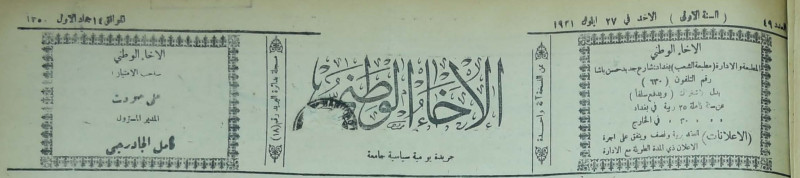 العدد ٤٩ ( السنة الاولى ) الاحد في ٢٧ ايلول ١٩٣١ الموافق ١٤ جماد الاول ١٣٥٠
الاخاء الوطني
المطبعة والادارة (مطبعة الشعب) بغداد شارع جديد حسن باشا
رقم التلفون (٦٣٠)
بدل الاشتراك (ويدفع سلفاً)
عن سنة كاملة ٢٥ ربية في بغداد
٣٠ في الخارج
(الاعلانات) ربية ونصف ويتفق على اجرة
الاعلان ذي المدة الطويلة مع الادارة
ثمن النسخة آنة واحدة
الاخاء الوطني
جريدة يومية سياسية جامعة
مسجلة بدائرة البريد رقم (١٨)
الاخاء الوطني
صاحب الامتياز:
علي جودت
المدير المسؤول
كامل الجادرجي